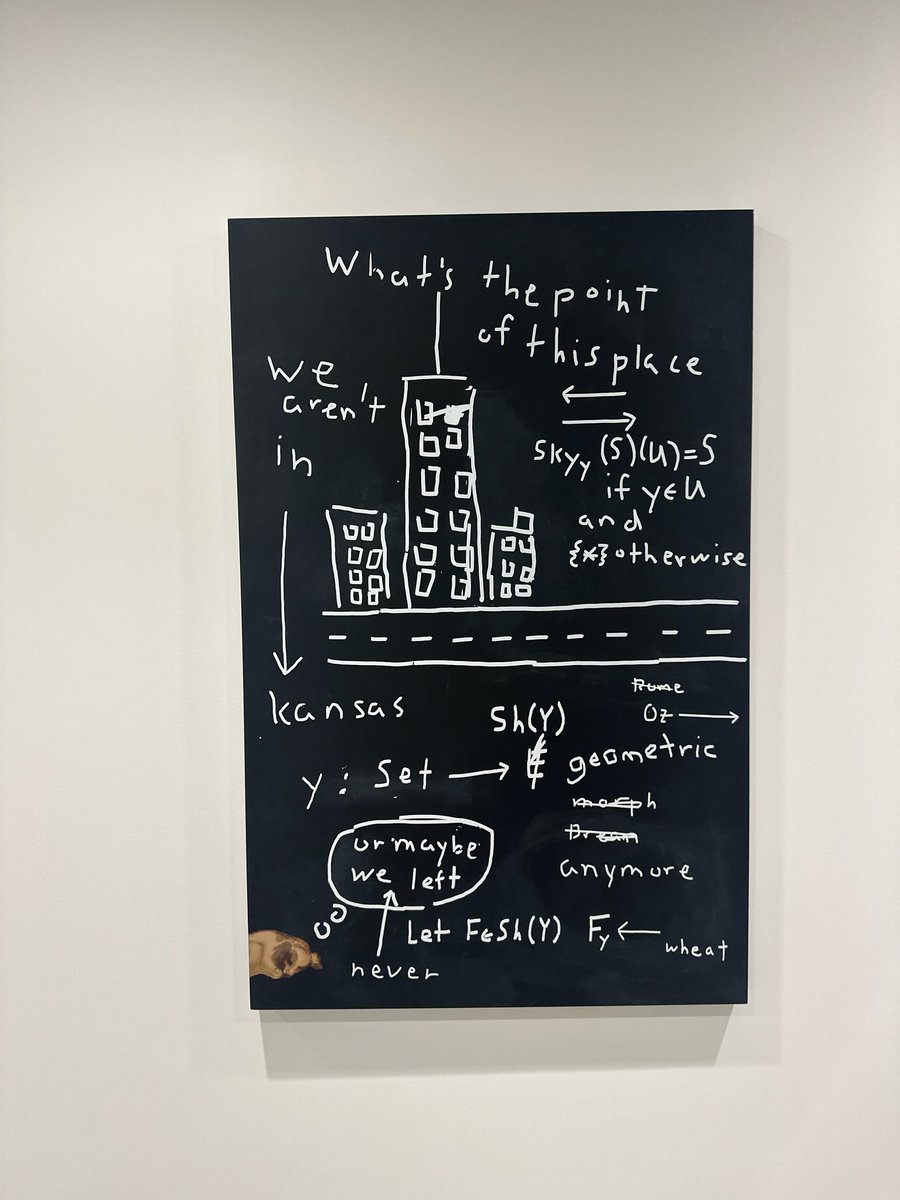 What's the point
of this place
we
aren't
in
sky_y (S)(U)=S
if y∈U
and
{*} otherwise
kansas
Oz →
Sh(Y)
y : Set →
geometric
morph
anymore
or maybe
we left
Let F∈Sh(Y) F_y ←
wheat
never